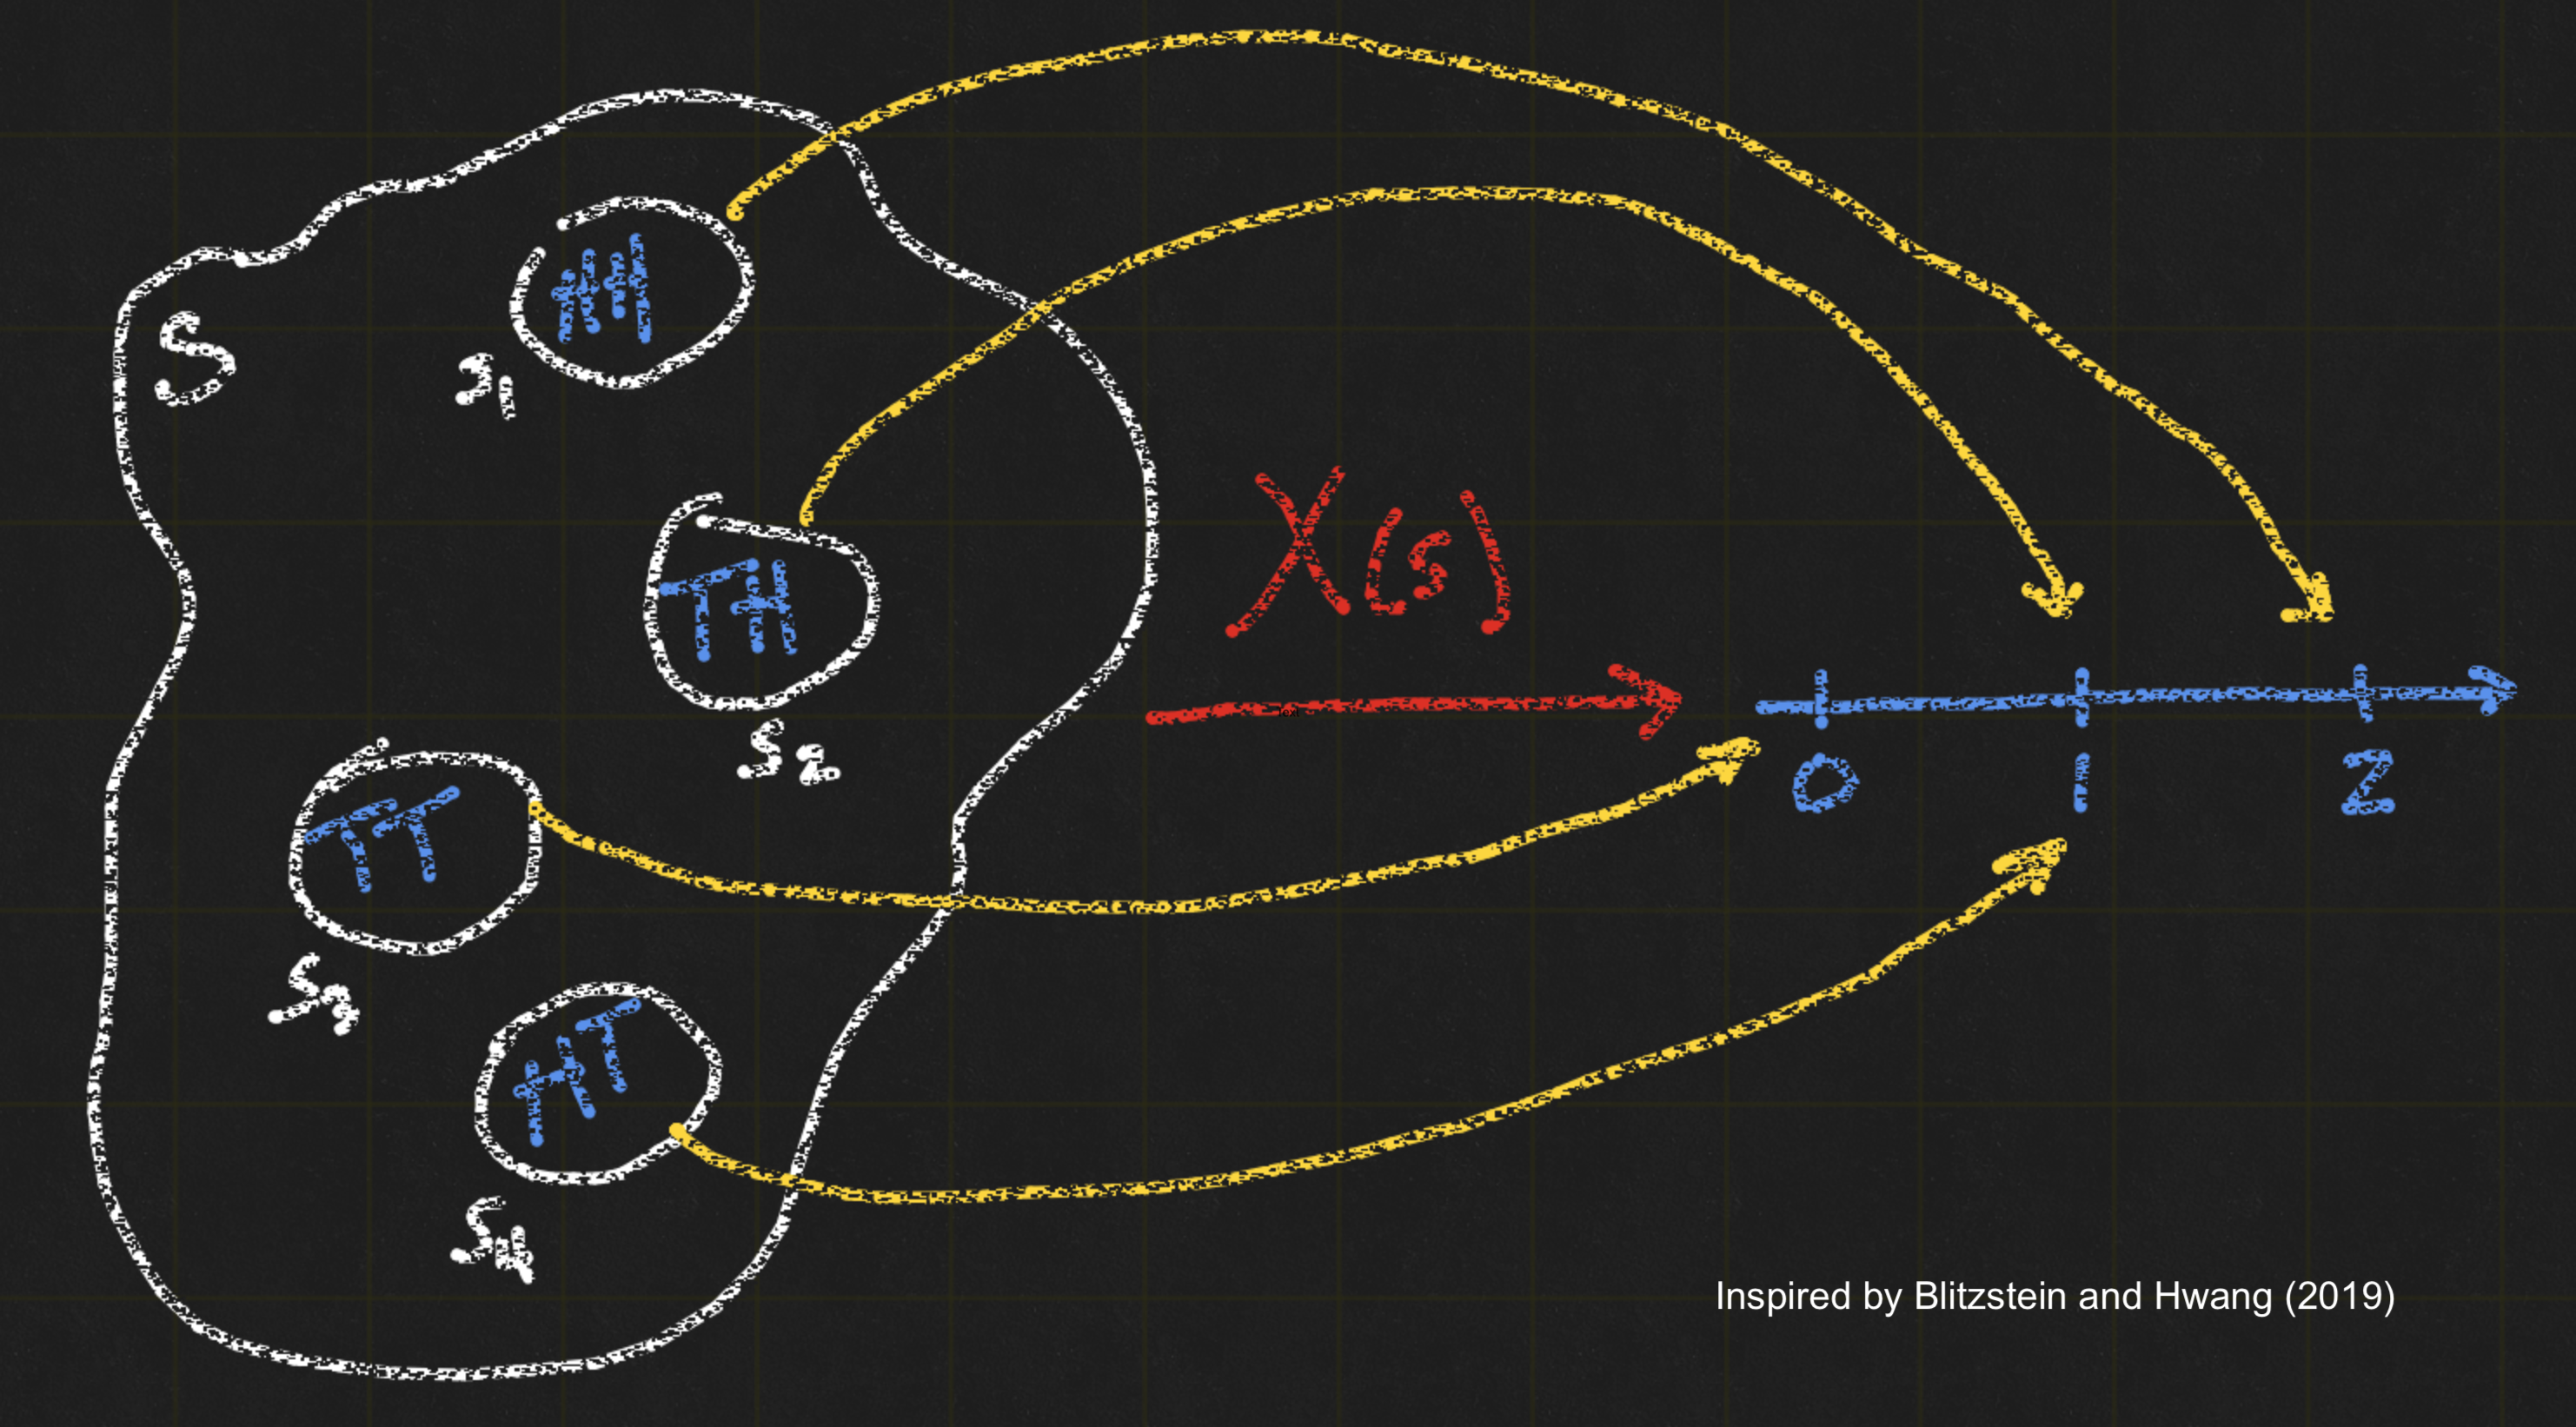 S
HH
S1
TH
S2
TT
S3
HT
S4
X(s)
0 1 2
Inspired by Blitzstein and Hwang (2019)